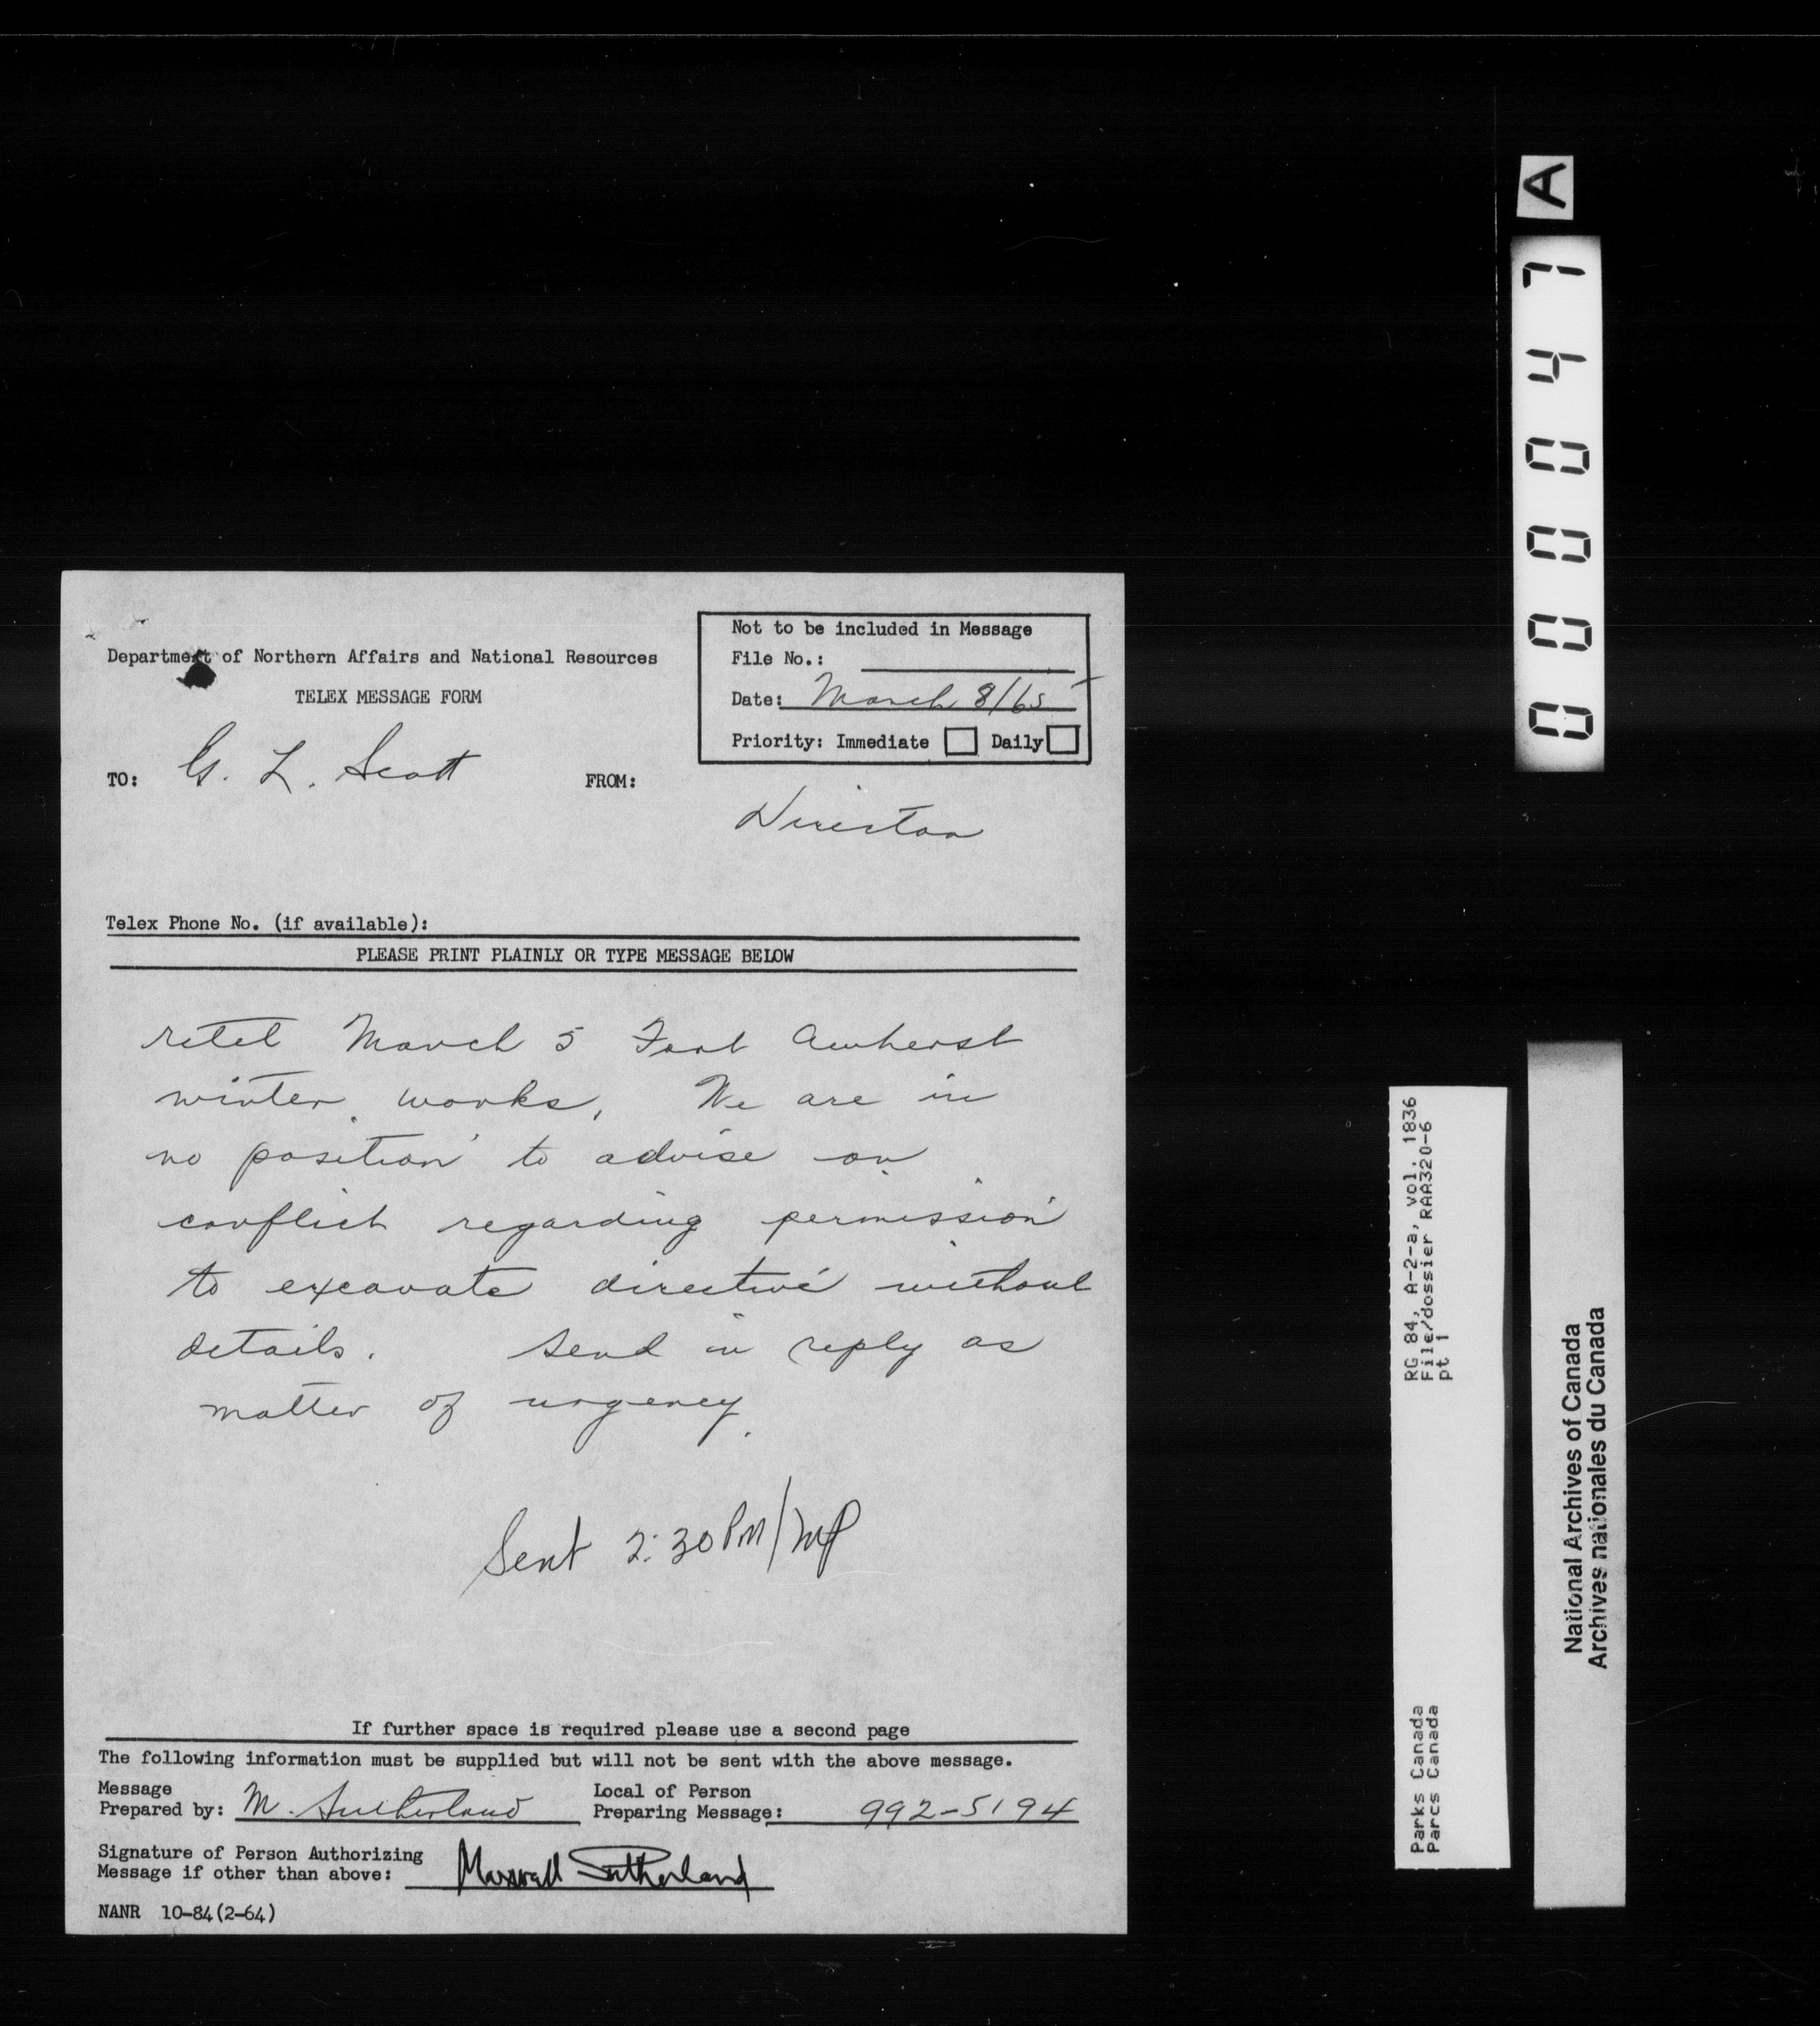 Department of Northern Affairs and National Resources
TELEX MESSAGE FORM
Not to be included in Message
File No.:
Date: March 8/65
Priority: Immediate Daily
TO: G. L. Scott
FROM: Director
Telex Phone No. (if available):
PLEASE PRINT PLAINLY OR TYPE MESSAGE BELOW
retel March 5 Fort Amherst
winter works. We are in
no position to advise on
conflict regarding permission
to excavate directive without
details. Send in reply as
matter of urgency.
Sent 2:30 PM/
If further space is required please use a second page
The following information must be supplied but will not be sent with the above message.
Message
Prepared by: M. Sutherland
Local of Person
Preparing Message: 992-5194
Signature of Person Authorizing
Message if other than above: Maxwell Sutherland
NANR 10-84(2-64)
A
000047
RG 84, A-2-a, vol. 1836
File/dossier RAA320-6
pt 1
Parks Canada
Parcs Canada
National Archives of Canada
Archives nationales du Canada